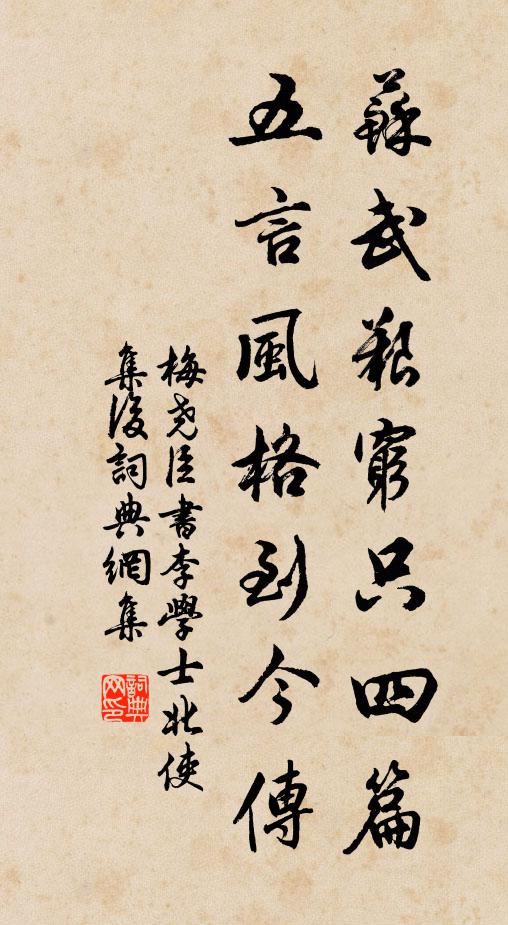 蘇武艱窮只四篇
五言風格到今傳
梅堯臣書李學士北使
集後詞典網集
詞典
网印